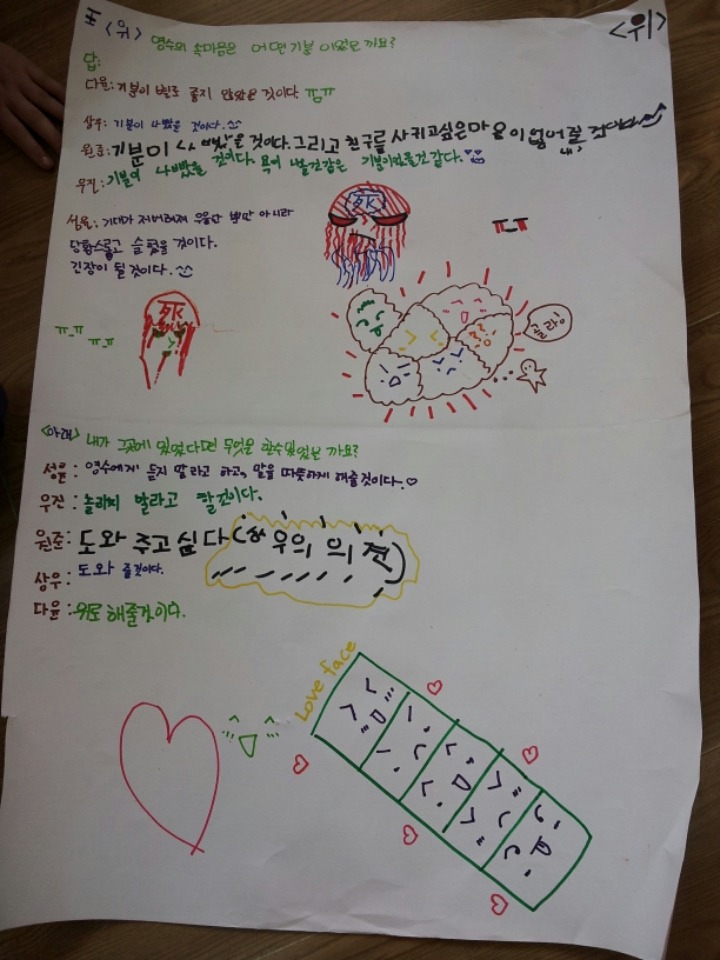 <위> 영수의 속마음은 어떤 기분 이었을 까요?
<위>
답:
다윤: 기분이 별로 좋지 않았을 것이다. ㅠ_ㅠ
상우: 기분이 나빴을 것이다. ^^
원준: 기분이 나빴을 것이다. 그리고 친구를 사귀고싶은마음이 없어질 것이다
우진: 기분이 나빴을 것이다. 욕이 나올것같은 기분이었을것 같다.
성윤: 기대가 저버려져 우울할 뿐만 아니라
당황스럽고 슬펐을 것이다.
긴장이 될 것이다. ^^
ㅠ_ㅠ
ㅠ_ㅠ
ㅠ_ㅠ
놀라잉
<아래> 내가 그곳에 있었다면 무엇을 할수있었을 까요?
성윤: 영수에게 듣지 말라고 하고, 말을 따뜻하게 해줄것이다. ♡
우진: 놀리지 말라고 할것이다.
원준: 도와 주고 싶다 (상우의 의견)
상우: 도와 줄것이다.
다윤: 위로 해줄것이다.
Love face